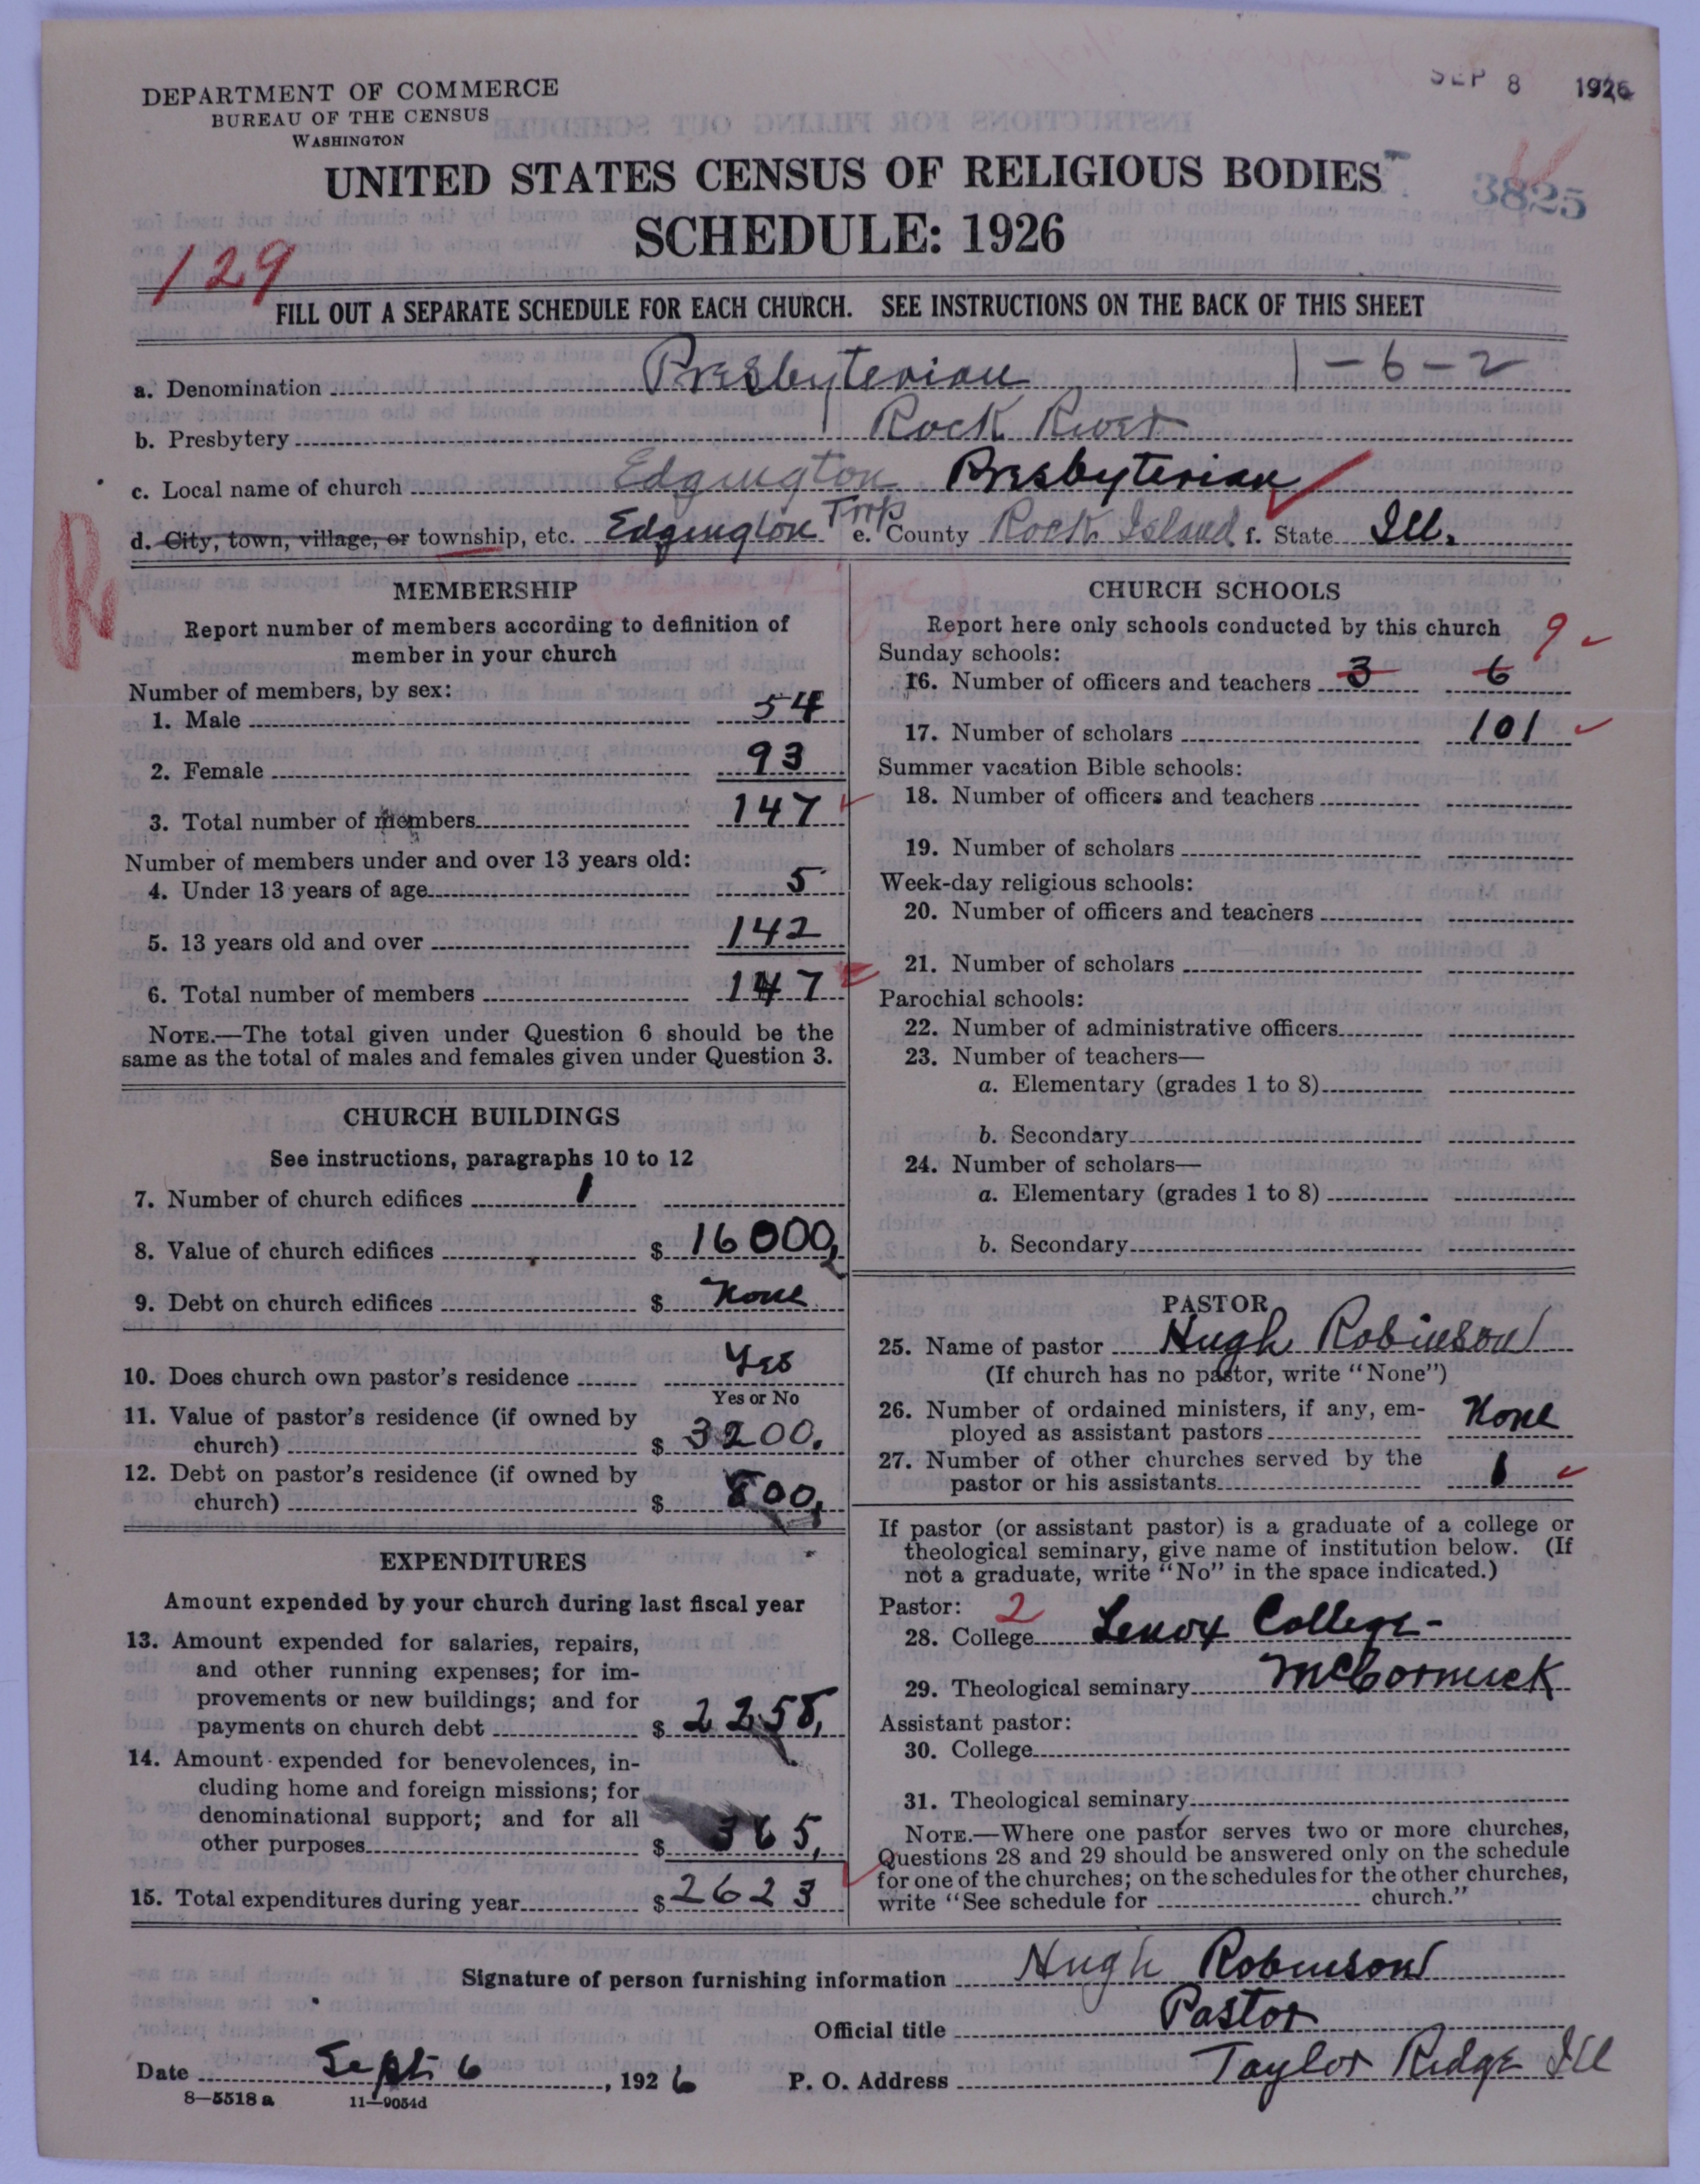 SEP 8 1926
DEPARTMENT OF COMMERCE
BUREAU OF THE CENSUS
WASHINGTON
UNITED STATES CENSUS OF RELIGIOUS BODIES
3825
SCHEDULE: 1926
129
FILL OUT A SEPARATE SCHEDULE FOR EACH CHURCH. SEE INSTRUCTIONS ON THE BACK OF THIS SHEET
a. Denomination Presbyterian 1-6-2
b. Presbytery Rock River
c. Local name of church Edgington Presbyterian
d. City, town, village, or township, etc. Edgington Twp e. County Rock Island f. State Ill.
R
MEMBERSHIP
Report number of members according to definition of
member in your church
Number of members, by sex:
1. Male 54
2. Female 93
3. Total number of members 147
Number of members under and over 13 years old:
4. Under 13 years of age 5
5. 13 years old and over 142
6. Total number of members 147
NOTE.—The total given under Question 6 should be the
same as the total of males and females given under Question 3.
CHURCH BUILDINGS
See instructions, paragraphs 10 to 12
7. Number of church edifices 1
8. Value of church edifices $ 16000,
9. Debt on church edifices $ None
10. Does church own pastor's residence Yes
Yes or No
11. Value of pastor's residence (if owned by
church) $ 3200.
12. Debt on pastor's residence (if owned by
church) $ 800,
EXPENDITURES
Amount expended by your church during last fiscal year
13. Amount expended for salaries, repairs,
and other running expenses; for im-
provements or new buildings; and for
payments on church debt $ 2258,
14. Amount expended for benevolences, in-
cluding home and foreign missions; for
denominational support; and for all
other purposes $ 365,
15. Total expenditures during year $ 2623
CHURCH SCHOOLS
Report here only schools conducted by this church 9
Sunday schools:
16. Number of officers and teachers 3 6
17. Number of scholars 101
Summer vacation Bible schools:
18. Number of officers and teachers
19. Number of scholars
Week-day religious schools:
20. Number of officers and teachers
21. Number of scholars
Parochial schools:
22. Number of administrative officers
23. Number of teachers—
a. Elementary (grades 1 to 8)
b. Secondary
24. Number of scholars—
a. Elementary (grades 1 to 8)
b. Secondary
PASTOR
25. Name of pastor Hugh Robinson
(If church has no pastor, write "None")
26. Number of ordained ministers, if any, em-
ployed as assistant pastors None
27. Number of other churches served by the
pastor or his assistants 1
If pastor (or assistant pastor) is a graduate of a college or
theological seminary, give name of institution below. (If
not a graduate, write "No" in the space indicated.)
Pastor: 2
28. College Lenox College-
29. Theological seminary McCormick
Assistant pastor:
30. College
31. Theological seminary
NOTE.—Where one pastor serves two or more churches,
Questions 28 and 29 should be answered only on the schedule
for one of the churches; on the schedules for the other churches,
write "See schedule for church."
Signature of person furnishing information Hugh Robinson
Official title Pastor
Date Sept 6, 1926 P. O. Address Taylor Ridge Ill
8—5518 a 11—9054d